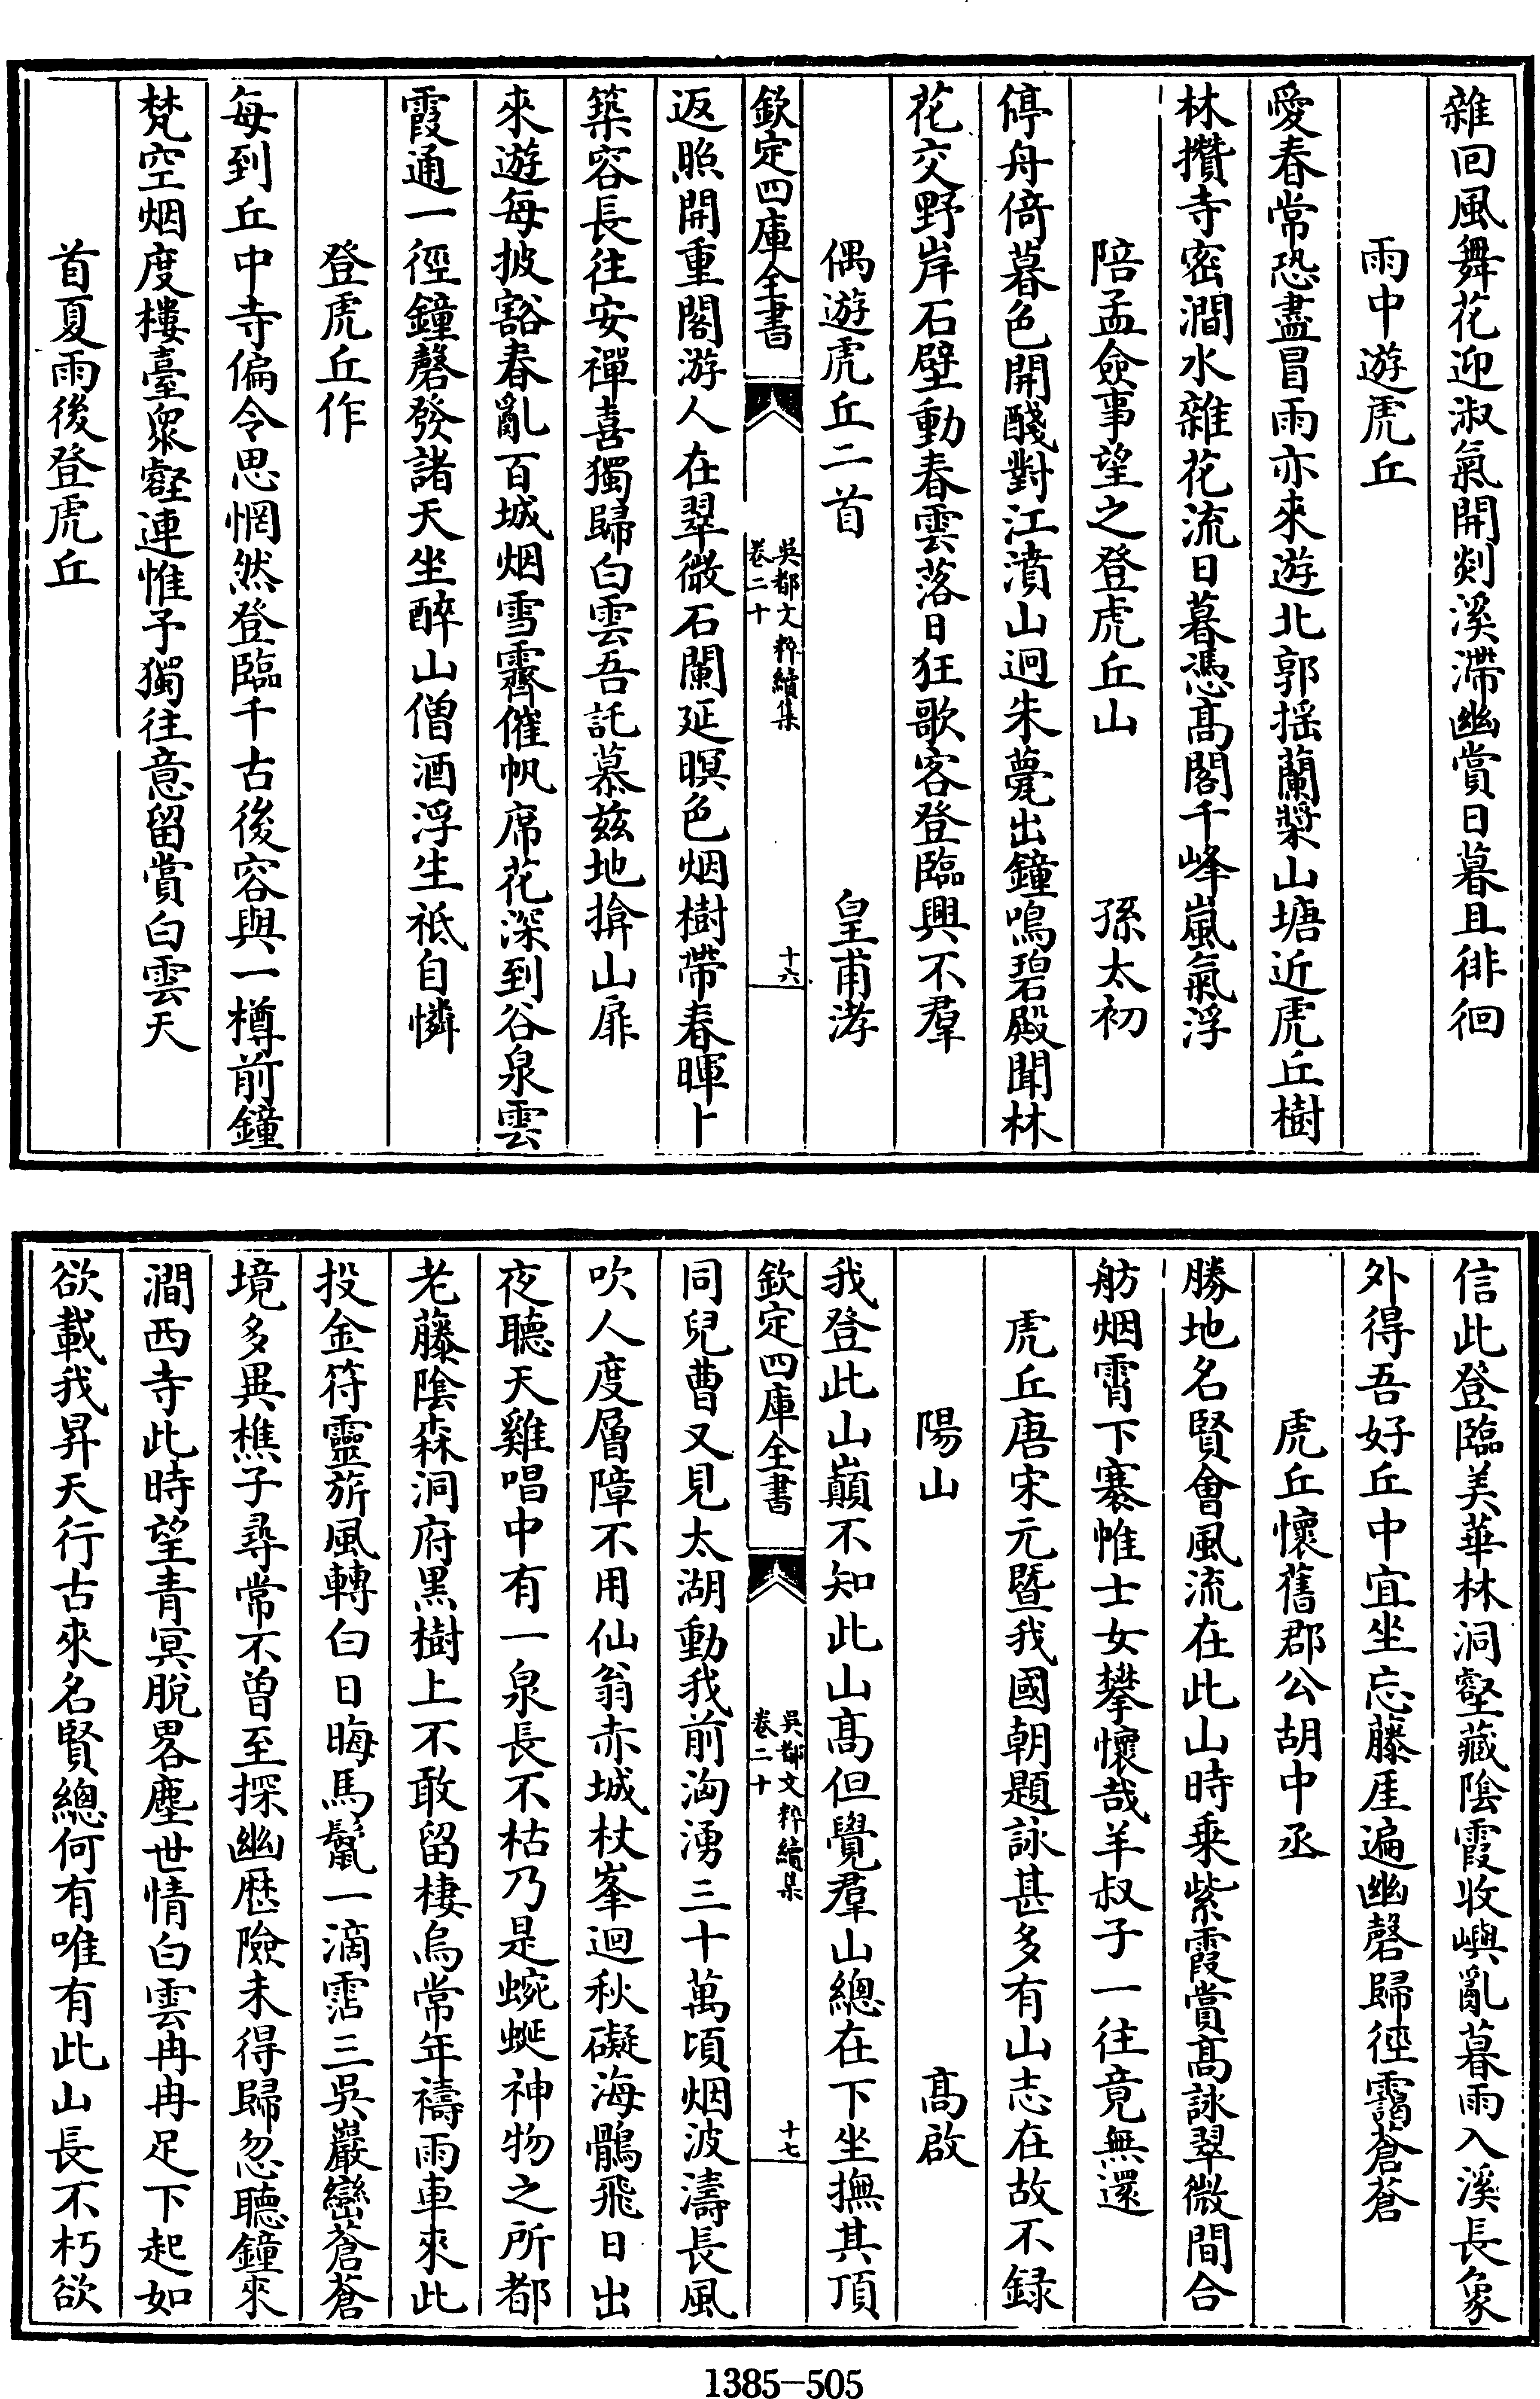 雜回風舞花迎淑氣開剡溪滯幽賞日暮且徘徊
雨中遊虎丘
愛春常恐盡冒雨亦來遊北郭揺蘭槳山塘近虎丘樹
林攢寺密澗水雜花流日暮憑高閣千峰嵐氣浮
陪孟僉事望之登虎丘山　孫太初
停舟倚暮色開醆對江濆山迥朱甍出鐘鳴碧殿聞林
花交野岸石壁動春雲落日狂歌客登臨興不羣
偶遊虎丘二首　皇甫涍
欽定四庫全書　吳都文粹續集
卷二十　十六
返照開重閣游人在翠微石闌延暝色烟樹帶春暉卜
築容長往安禪喜獨歸白雲吾託慕兹地揜山扉
來遊每披豁春亂百城烟雪霽催帆席花深到谷泉雲
霞通一徑鐘磬發諸天坐醉山僧酒浮生祗自憐
登虎丘作
每到丘中寺偏令思惘然登臨千古後容與一樽前鐘
梵空烟度樓臺衆壑連惟予獨往意留賞白雲天
首夏雨後登虎丘
信此登臨美華林洞壑藏陰霞收嶼亂暮雨入溪長象
外得吾好丘中宜坐忘藤厓遍幽磬歸徑靄蒼蒼
虎丘懷舊郡公胡中丞
勝地名賢會風流在此山時乗紫霞賞高詠翠微間合
舫烟霄下褰帷士女攀懷哉羊叔子一往竟無還
虎丘唐宋元暨我國朝題詠甚多有山志在故不録
陽山　高啟
我登此山巔不知此山高但覺羣山總在下坐撫其頂
欽定四庫全書　吳都文粹續集
卷二十　十七
同兒曹又見太湖動我前洶湧三十萬頃烟波濤長風
吹人度層障不用仙翁赤城杖峯迴秋礙海鶻飛日出
夜聽天雞唱中有一泉長不枯乃是蜿蜒神物之所都
老藤陰森洞府黒樹上不敢留棲烏常年禱雨車來此
投金符靈旂風轉白日晦馬鬣一滴霑三吳巖巒蒼蒼
境多異樵子尋常不曽至探幽歴險未得歸忽聽鐘來
澗西寺此時望青冥脫畧塵世情白雲冉冉足下起如
欲載我昇天行古來名賢總何有唯有此山長不朽欲
1385-505